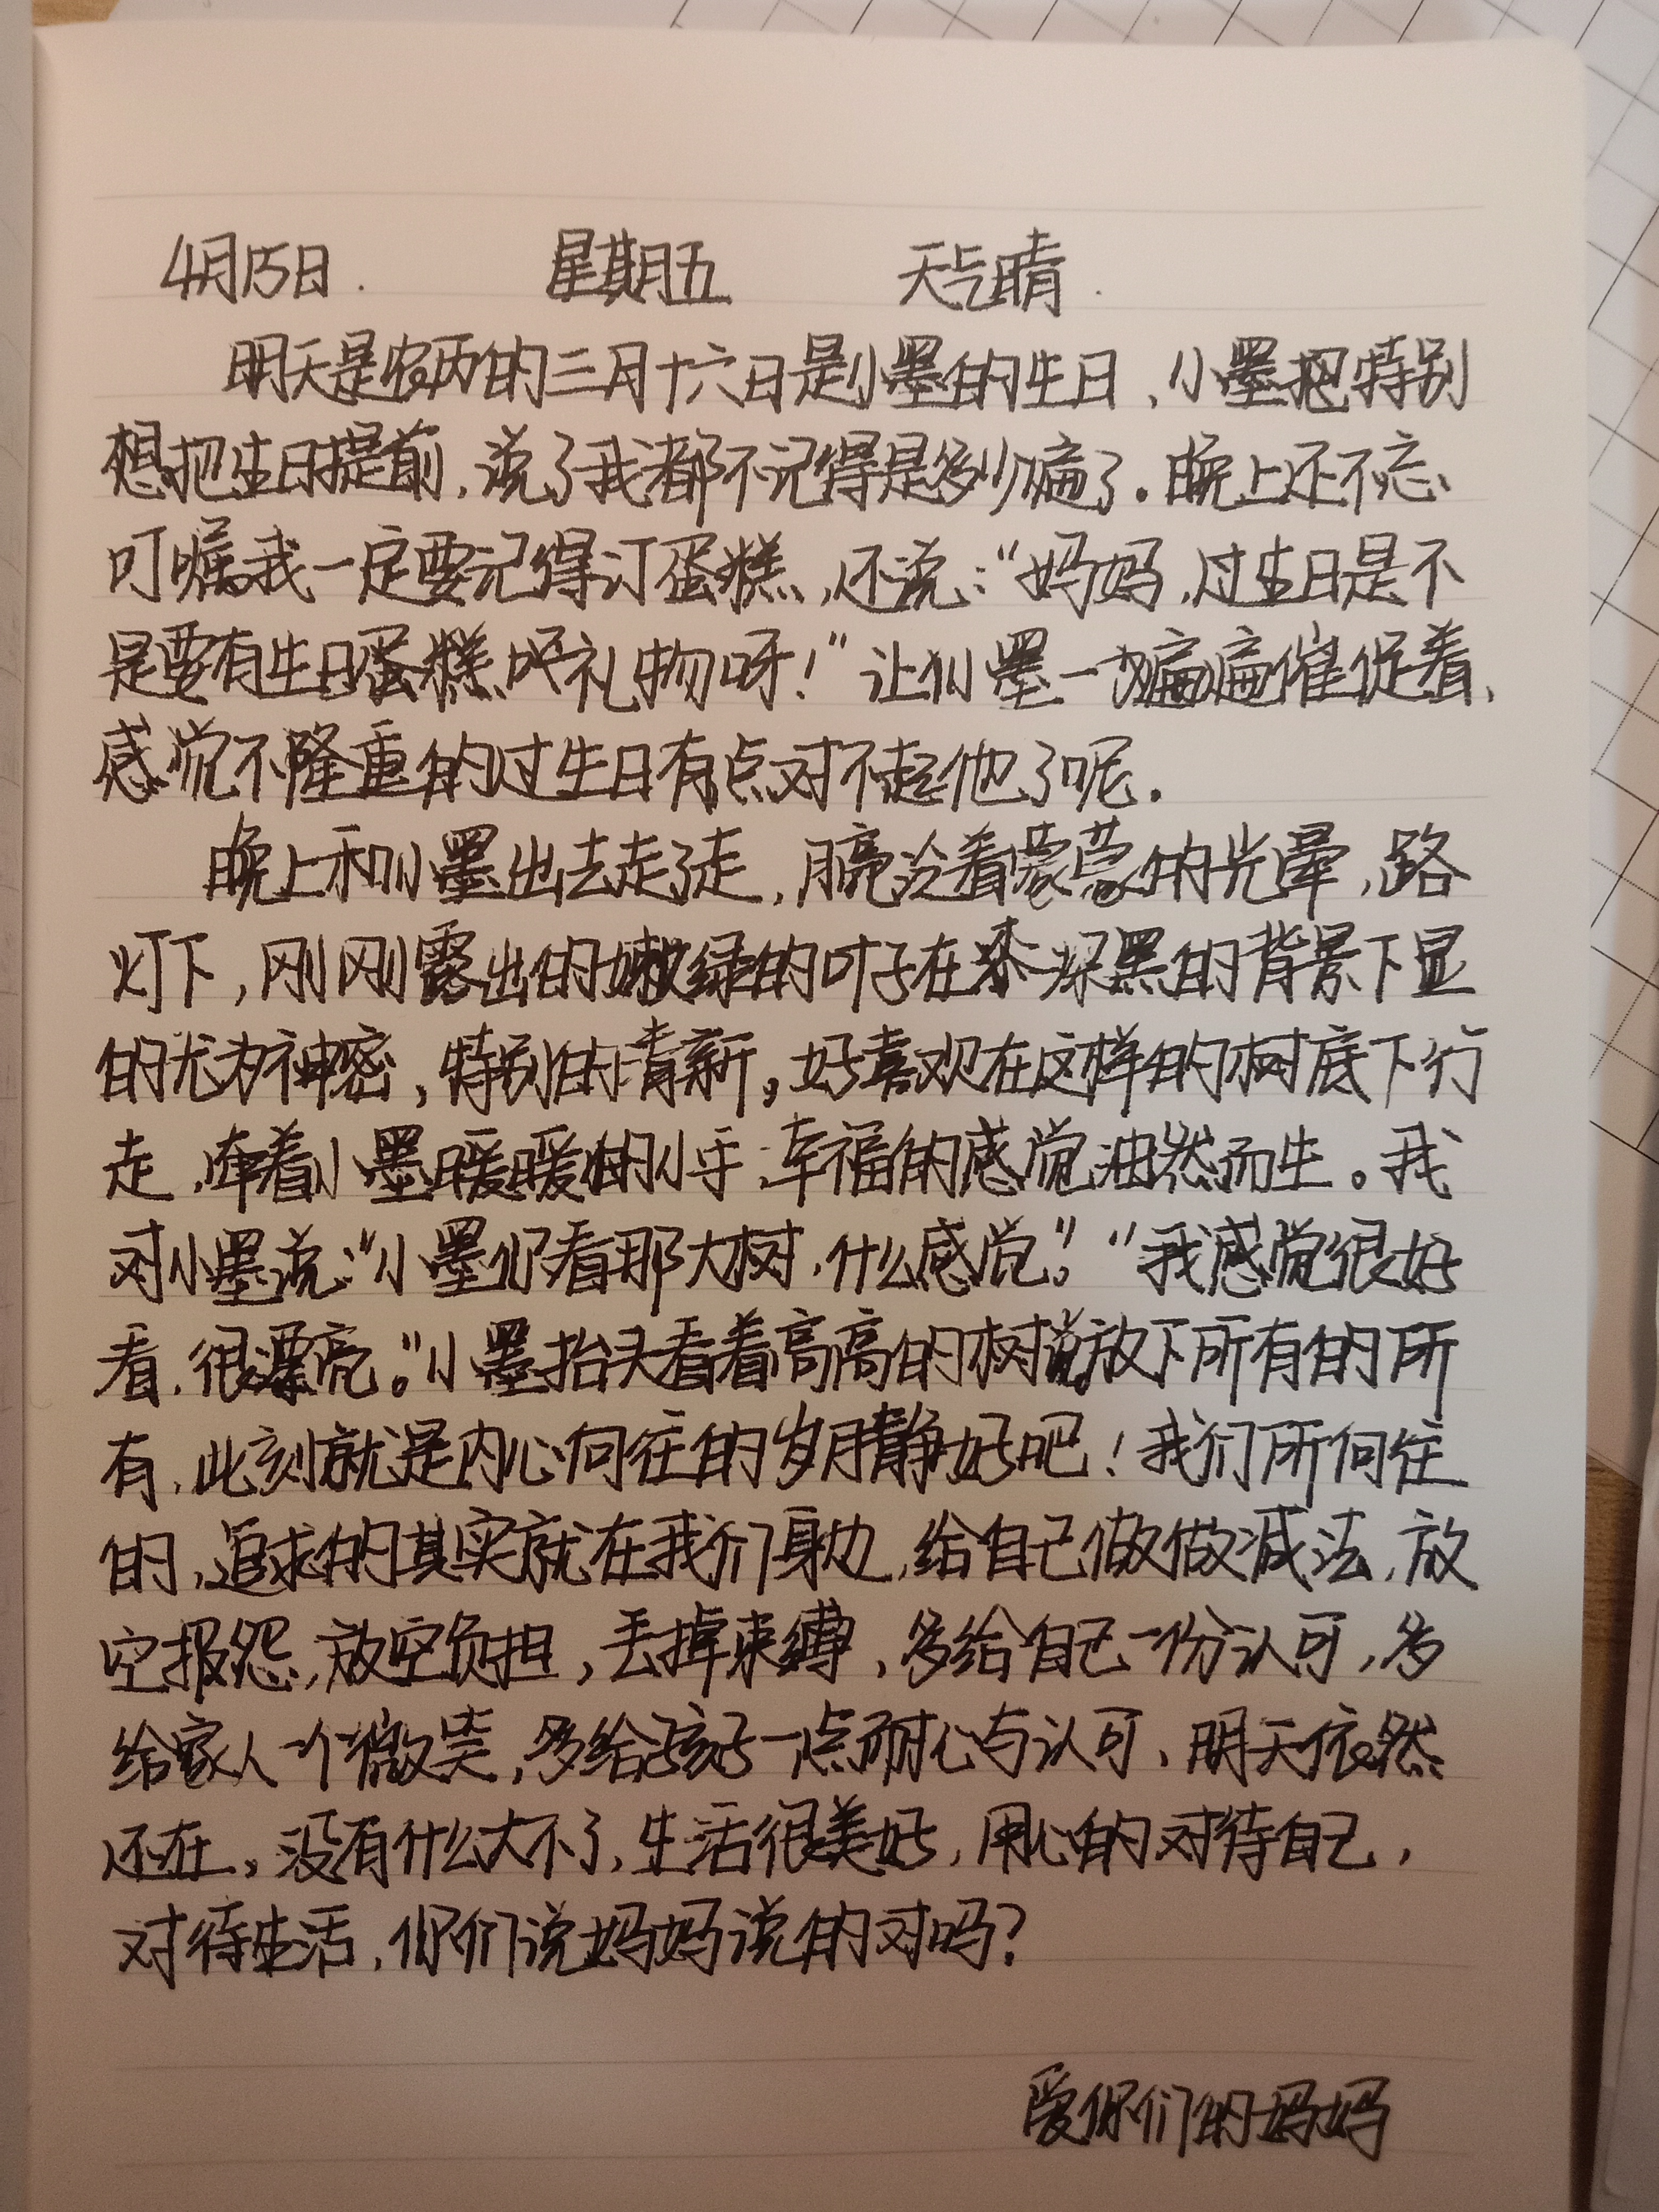 4月15日. 星期五 天气晴.
明天是农历的三月十六日是小墨的生日，小墨把特别
想把生日提前，说了我都不记得是多少遍了。晚上还不忘
叮嘱我一定要记得订蛋糕，还说：“妈妈，过生日是不
是要有生日蛋糕 礼物呀！”让小墨一遍遍催促着，
感觉不隆重的过生日有点对不起他了呢。
晚上和小墨出去走了走，月亮泛着蒙蒙的光晕，路
灯下，刚刚露出的嫩绿的叶子在深黑的背景下显
的尤为神密，特别的清新。好喜欢在这样的树底下行
走，牵着小墨暖暖的小手，幸福的感觉油然而生。我
对小墨说：“小墨你看那大树，什么感觉。”“我感觉很好
看，很漂亮。”小墨抬头看着高高的树说放下所有的所
有，此刻就是内心向往的岁月静好吧！我们所向往
的，追求的其实就在我们身边，给自己做做减法，放
空报怨，放空负担，丢掉束缚，多给自己一份认可，多
给家人一个微笑，多给孩子一点耐心与认可，明天依然
还在。没有什么大不了，生活很美好，用心的对待自己，
对待生活，你们说妈妈说的对吗？
爱你们的妈妈